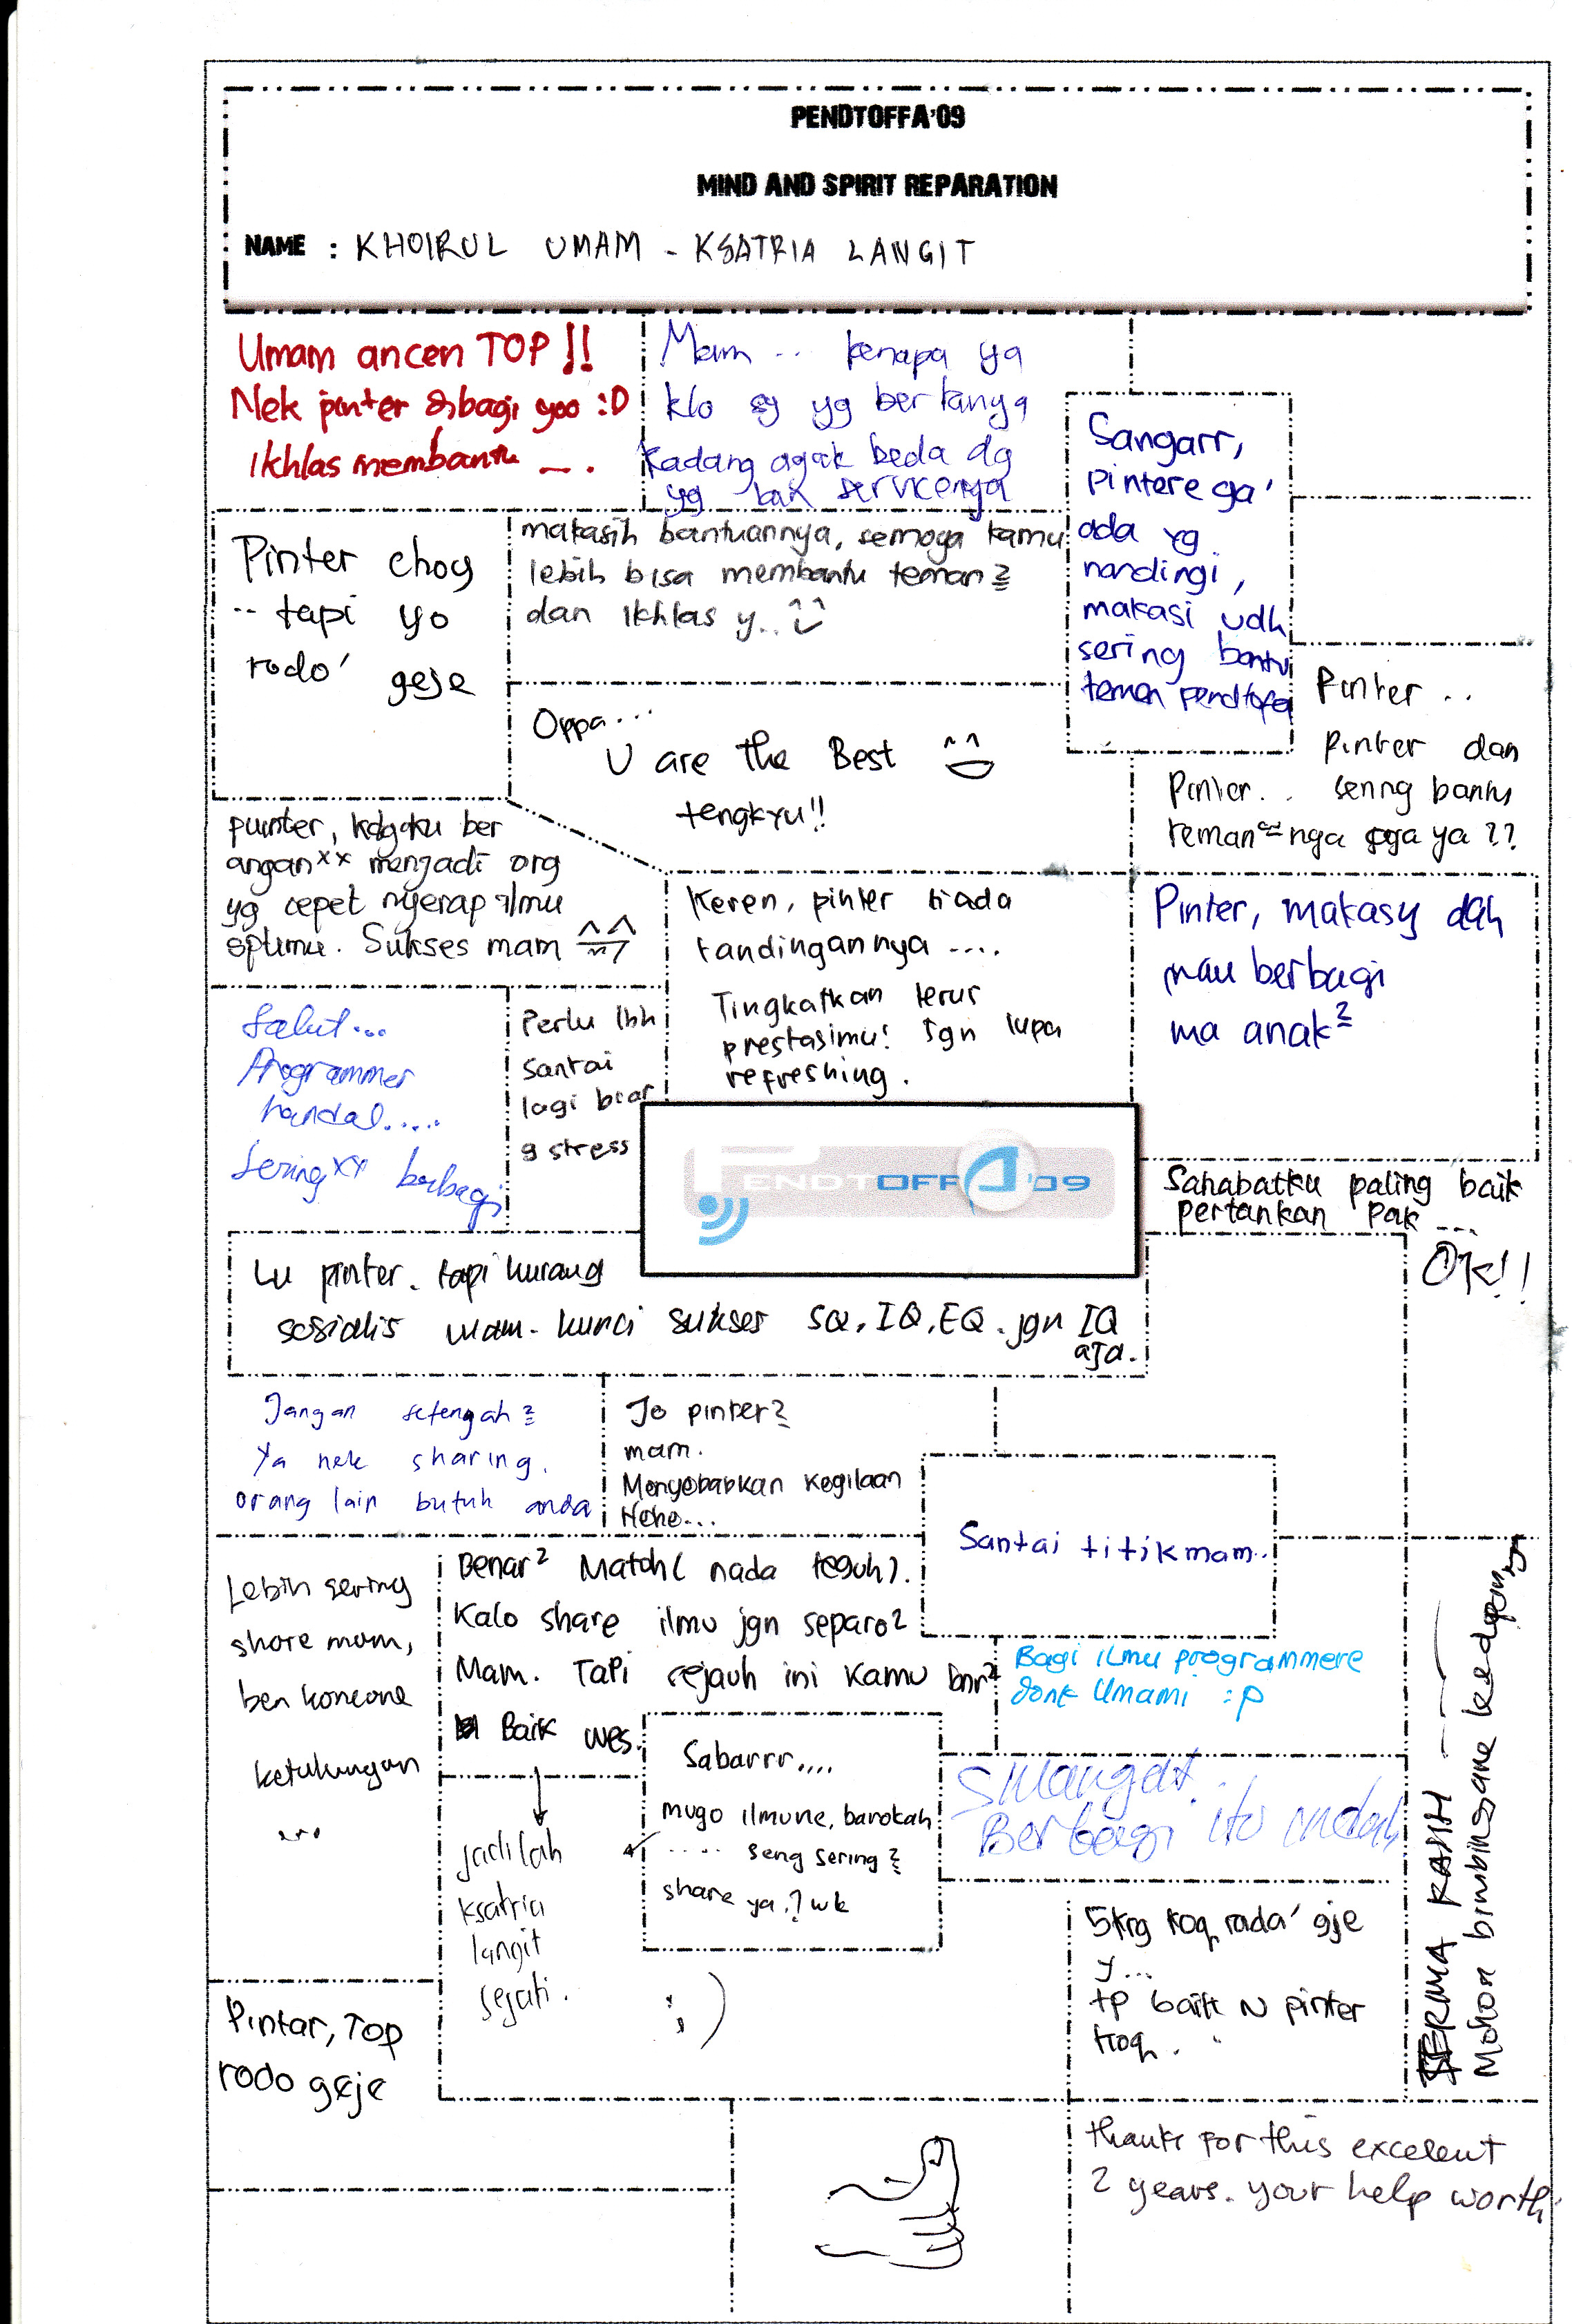 PENDTOFFA'09
MIND AND SPIRIT REPARATION
NAME : KHOIRUL UMAM - KSATRIA LANGIT
Umam ancen TOP !!
Nek pinter dibagi yoo :D
Ikhlas membantu ....
Mam ... kenapa ya
klo yg bertanya
kadang agak beda dg
yg servicenya
Sangarr,
pintere ga'
ada yg
nandingi,
makasi udh
sering bantu
temen pendtofa
Pinter choy
.. tapi yo
rodo' geje
makasih bantuannya, semoga kamu
lebih bisa membantu teman2
dan ikhlas y.. ^^
Oppa...
U are the Best ^^
tengkyu!!
Pinter ..
pinter dan
Pinter.. sering bantu
teman2 nga juga ya ??
puinter, kdgaku ber
angan xx menjadi org
yg cepet nyerap ilmu
sptimu. Sukses mam ^^
Keren, pinter tiada
tandingannya ....
Tingkatkan terus
prestasimu! Jgn lupa
refreshing.
Pinter, makasy dah
mau berbagi
ma anak2
Salut...
Programmer
handal.....
Sering xx berbagi
Perlu lbh
santai
lagi biar
g stress
PENDTOFFA'09
Sahabatku paling baik
pertankan pak ...
OK!!
Lu pinter. tapi kurang
sosialis mam. kunci sukses SQ, IQ, EQ. jgn IQ
aja.
Jangan setengah2
Ya nek sharing.
orang lain butuh anda
Jo pinter2
mam.
Menyebabkan kegilaan
Hehe...
Santai titik mam..
Lebih sering
share mam,
ben koncone
ketulungan
...
Benar2 Matoh ( nada teguh ).
Kalo share ilmu jgn separo2
Mam. Tapi sejauh ini kamu bnr2
Baik wes.
Bagi ilmu programmere
donk Umami :p
jadilah
ksatria
langit
sejati.
;)
Sabarrr....
mugo ilmune, barokah
..... seng sering2
share ya ? wk
SMangat.
Berbagi itu indah
5krg koq rada' gje
y...
tp baik N pinter
koq.
TERIMA KASIH
Mohon bimbingane kedepannya
Pintar, Top
rodo geje
thanks for this excelent
2 years. your help worth